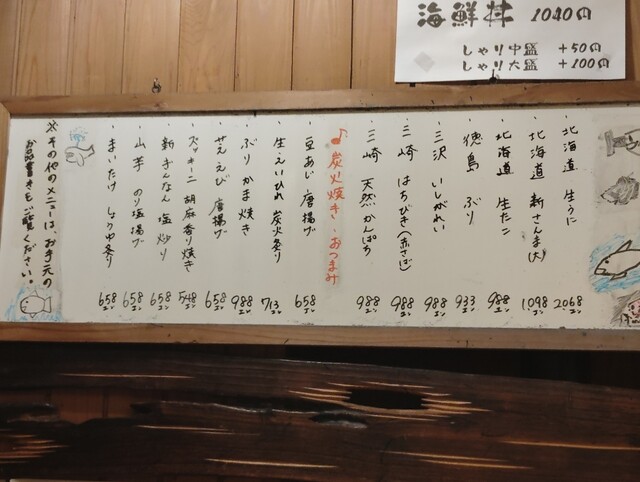 海鮮丼 1040円
しゃり中盛 +50円
しゃり大盛 +100円
・北海道 生うに 2068エン
・北海道 新さんま(大) 1,098エン
・北海道 生たこ 988エン
・徳島 ぶり 933エン
・三沢 いしがれい 988エン
・三崎 はちびき(赤さば) 988エン
・三崎 天然かんぱち 988エン
♪炭火焼き・おつまみ
・豆あじ 唐揚げ 658エン
・生えいひれ 炭火炙り 713エン
・ぶりかま焼き 988エン
・甘えび 唐揚げ 658エン
・ズッキーニ 胡麻香り焼き 548エン
・新ぎんなん 塩炒り 658エン
・山芋 のり塩揚げ 658エン
・まいたけ しょうゆ炙り 658エン
※その他のメニューは、お手元の
お品書きをご覧ください。